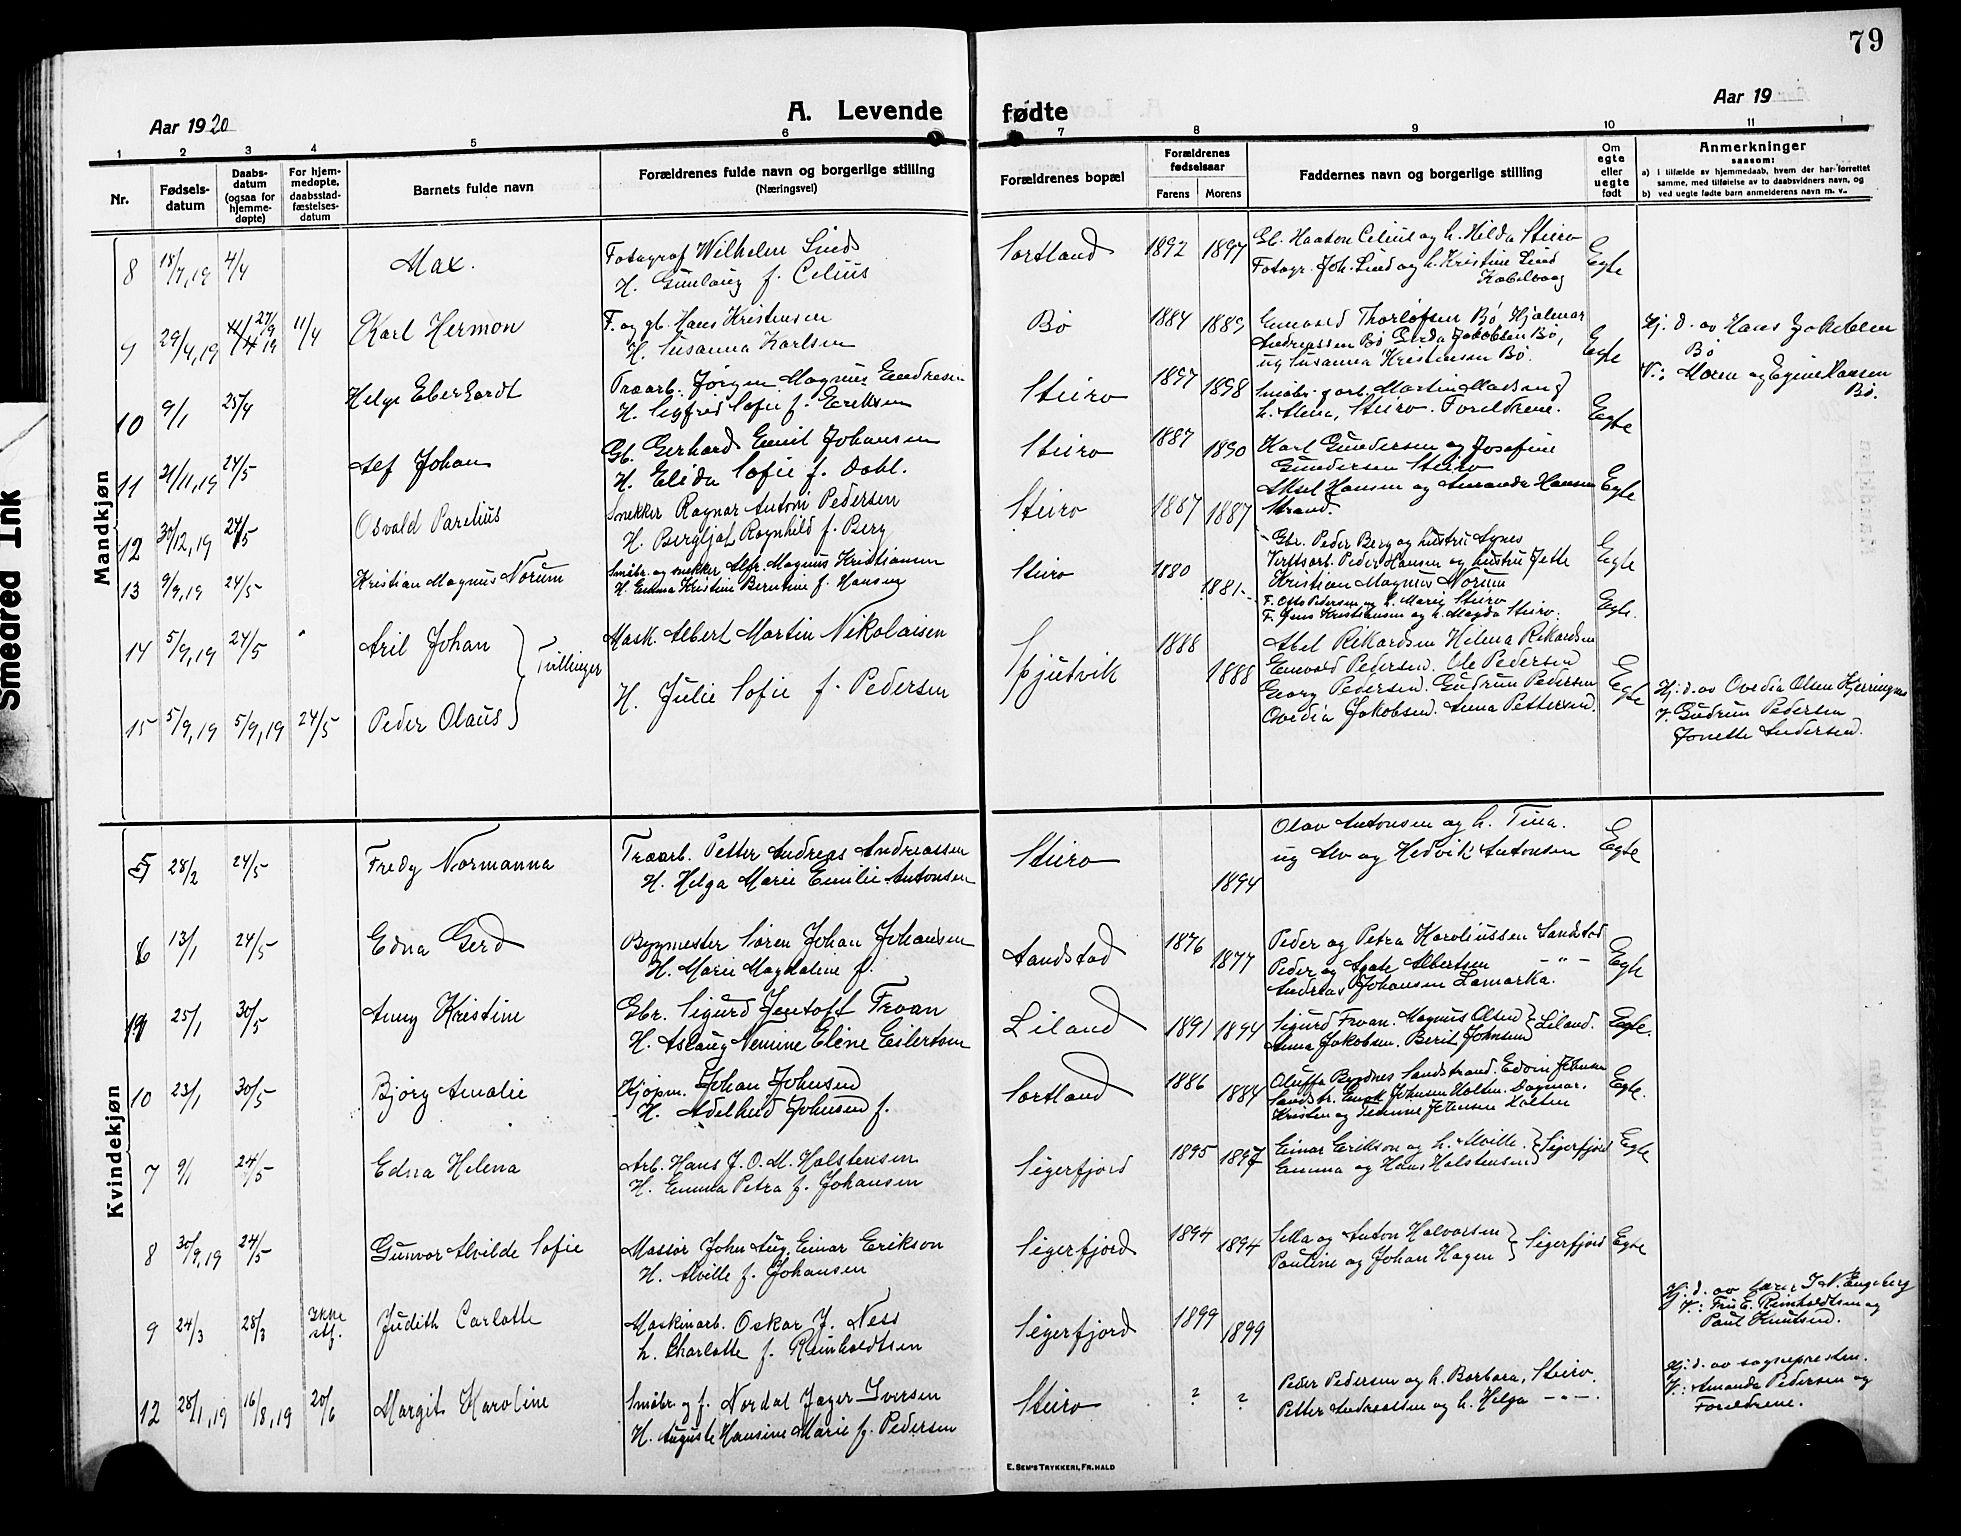 79
Aar 1920
A. Levende
fødte
Aar 19
1 2 3 4 5 6 7 8 9 10 11
Nr.
Fødsels-
datum
Daabs-
datum
(ogsaa for
hjemme-
døpte)
For hjem-
medøpte,
daabsstad-
fæstelses-
datum
Barnets fulde navn
Forældrenes fulde navn og borgerlige stilling
(Næringsvei)
Forældrenes bopæl
Forældrenes
fødselsaar
Farens Morens
Faddernes navn og borgerlige stilling
Om
egte
eller
uegte
født
Anmerkninger
saasom:
a) i tilfælde av hjemmedaab, hvem der har forrettet
samme, med tilføielse av to daabsvidners navn, og
b) ved uegte fødte barn anmelderens navn m. v.
Mandkjøn
8 18/7,19 4/4 Max.
Fotograf Wilhelm Lind
H. Gunlaug f. Celius
Sortland 1892 1897
Gb. Haakon Celius og h. Hilda Steiro
Fotogr. Joh. Lind og h. Kristine Lind
Kabelvaag
Egte
9 29/4,19 27/9 19 11/4 Karl Hermon
F. og gb. Hans Kristensen
H. Susanna Karlsen
Bø 1884 1889
Thorlofsen Bø Hjalmar
Andreassen Bø Gerda Jakobsen Bø,
og Susanna Kristensen Bø.
Egte
Hj. d. av Hans Jakobsen
Bø
V.: Moren og Hansen
Bø.
10 9/1 25/4 Helge Eberhardt
Træarb. Jørgen Magnus Endresen
H. Sigfrid Sofie f. Eriksen
Steiro 1897 1898
Småbr. g. arb. Martin Madsen og
h. Stina, Steiro. Foreldrene.
Egte
11 21/11,19 24/5 Alf Johan
Gb. Gerhard Emil Johansen
H. Elida Sofie f. Dahl.
Steiro 1887 1890
Karl Gundersen og Josefine
Gundersen Steiro
Aksel Hansen og Amanda Hansen
Strand.
Egte
12 30/12,19 24/5 Osvald Parelius
Snekker Ragnar Anton Pedersen
H. Bergljot Ragnhild f. Berg
Steiro 1887 1887
Gbr. Peder Berg og hustru Agnes
Verftsarb. Peder Hansen og hustru Jette
Egte
13 9/9,19 24/5 Kristian Magnus Norum
Småbr. og snekker Alfr. Magnus Kristiansen
H. Emma Kristine Berntine f. Hansen
Steiro 1880 1881
Kristian Magnus Norum
F. Otto Pedersen og h. Marie Steiro
F. Jens Kristiansen og h. Magda Steiro.
Egte.
14 5/9,19 24/5 Aril Johan
Tvillinger
Mask. Albert Martin Nikolaisen
H. Julie Sofie f. Pedersen
Spjutvik 1888 1888
Abel Rikardsen Helena Rikardsen
Enevald Pedersen. Ole Pedersen
Georg Pedersen. Gudrun Pedersen
Ovedia Jakobsen. Anna Pettersen.
Egte
15 5/9,19 5/9,19 24/5 Peder Olaus
Hj. d. av Ovedia Olsen Hjerringnes
V. Gudrun Pedersen
Jonette Andersen.
Kvindekjøn
5 28/2 24/5 Fredy Normanna
Træarb. Petter Andreas Andreassen
H. Helga Marie Emilie Antonsen
Steiro 1894
Olav Antonsen og h. Tina.
og Alv og Hedvik Antonsen
Egte
6 13/1 24/5 Edna Gerd
Bygmester Søren Johan Johansen
H. Marie Magdaline f.
Sandstad 1876 1877
Peder og Petra Karoliussen Sandstad
Peder og Agate Albertsen - " -
Andreas Johansen Lamarka.
Egte
11 25/1 30/5 Anny Kristine
Gbr. Sigurd Jentoft Frvan
H. Aslaug Nemine Eline Eilertsen
Liland 1891 1894
Sigurd Frvan. Magnus Olsen
Anna Jakobsen. Berit Johnsen
Liland.
Egte.
10 23/1 30/5 Bjørg Amalie
Kjøpm. Johan Johnsen
H. Adelheid Johnsen f.
Sortland 1886 1884
Oluffa Byrdnes Sandstrand. Edvin Johnsen
Sandstr. Johnsen Holten. Dagmar.
Kristen og Johnsen Holten
Egte.
7 9/1 24/5 Edna Helena
Arb. Hans J. O. M. Holstensen
H. Emma Petra f. Johansen
Sigerfjord 1895 1897
Einar Erikson og h. Alville.
Emma og Hans Holstensen
Sigerfjord
Egte
8 30/9,19 24/5 Gunvor Alvilde Sofie
Massør John Aug. Einar Erikson
H. Alville f. Johansen
Sigerfjord 1894 1894
Sella og Anton Halvorsen
Pauline og Johan Hagen
Sigerfjord
Egte
9 24/3 28/3 Ikke
stf.
Judith Carlotte
Maskinarb. Oskar J. Ness
h. Charlotte f. Reinholdtsen
Sigerfjord 1899 1899
Hj. d. av lærer I. N. Engeberg
V.: Fru E. Reinholdtsen og
Paul Knutsen.
12 28/1,19 16/8,19 20/6 Margit Karoline
Småbr. og f. Nordal Jager Iversen
H. Auguste Hansine Marie f. Pedersen
Steiro ? ?
Peder Pedersen og h. Barbara, Steiro.
Petter Andreassen og h. Helga - " -
Hj. d. av sognepresten.
V.: Amanda Pedersen og
Foreldrene.
E. Sem's Trykkeri, Fr.hald
Smeared Ink